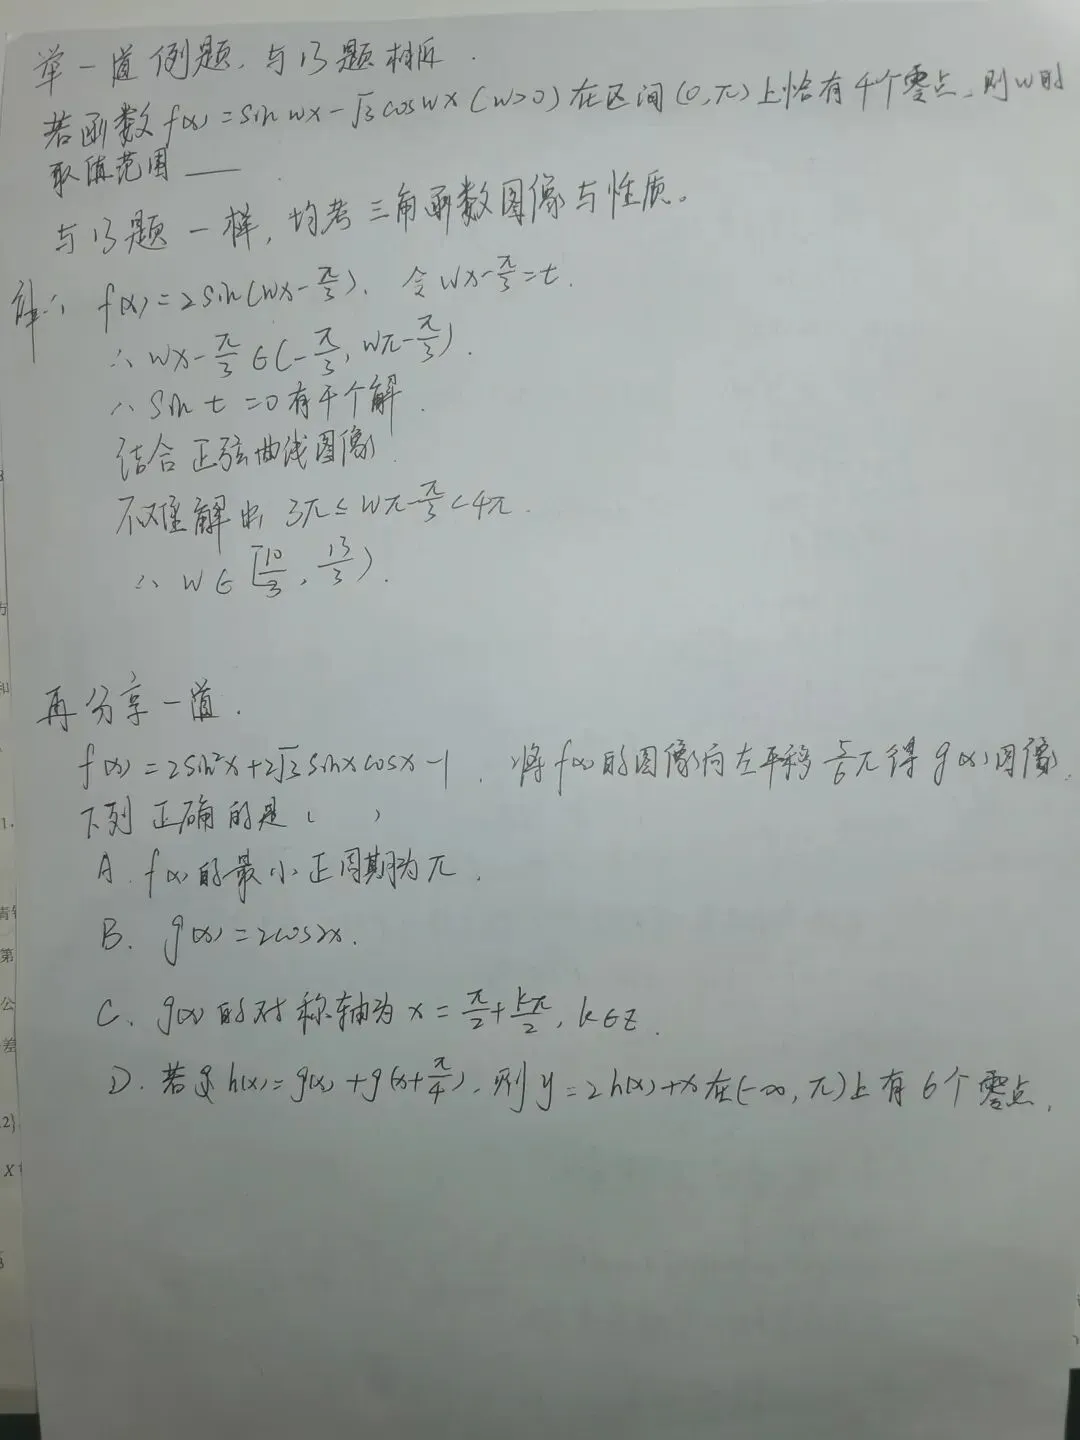 举一道例题,与13题相近.
若函数f(x)=sinwx-√3coswx(w>0)在区间(0,π)上恰有4个零点,则w的
取值范围____.
与13题一样,均考三角函数图像与性质。
解:f(x)=2sin(wx-π/3),令wx-π/3=t.
∴wx-π/3∈(-π/3,wπ-π/3).
∴sint=0有4个解.
结合正弦曲线图像.
不难解出3π≤wπ-π/3<4π.
∴w∈[10/3,13/3).
再分享一道.
f(x)=2sin²x+2√3sinxcosx-1.将f(x)的图像向左平移5/6π得g(x)图像.
下列正确的是( )
A.f(x)的最小正周期为π.
B.g(x)=2cos2x.
C.g(x)的对称轴为x=π/2+kπ/2,k∈Z.
D.若h(x)=g(x)+g(x+π/4),则y=2h(x)+x在(-∞,π)上有6个零点.
1.
青
第
公
差
2}
X